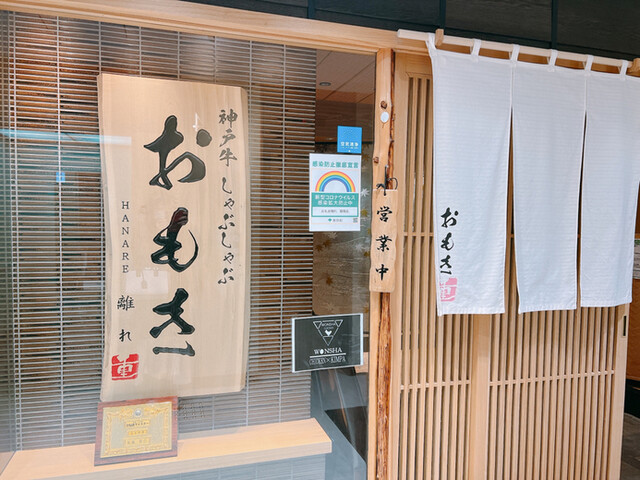 神戸牛 しゃぶしゃぶ
おもき
HANARE
離れ
感染防止徹底宣言
新型コロナウイルス
感染拡大防止中
営業中
WONSHA
CHICKEN×KIMPA
おもき